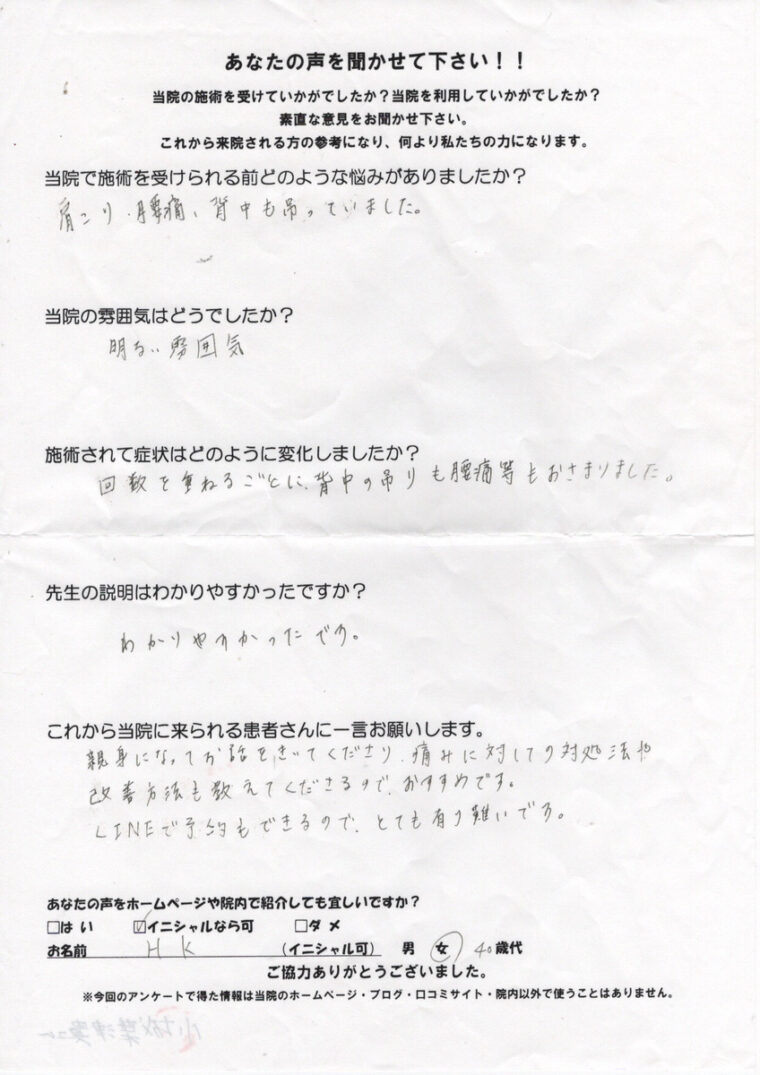 あなたの声を聞かせて下さい！！
当院の施術を受けていかがでしたか？当院を利用していかがでしたか？
素直な意見をお聞かせ下さい。
これから来院される方の参考になり、何より私たちの力になります。
当院で施術を受けられる前どのような悩みがありましたか？
肩こり、腰痛、背中も吊っていました。
当院の雰囲気はどうでしたか？
明るい雰囲気
施術されて症状はどのように変化しましたか？
回数を重ねるごとに、背中の吊りも腰痛等もおさまりました。
先生の説明はわかりやすかったですか？
わかりやすかったです。
これから当院に来られる患者さんに一言お願いします。
親身になってお話をきいてくださり、痛みに対しての対処法や
改善方法も教えてくださるので、おすすめです。
LINEで予約もできるので、とても有り難いです。
あなたの声をホームページや院内で紹介しても宜しいですか？
□はい ☑イニシャルなら可 □ダメ
お名前 H K (イニシャル可) 男 女 40歳代
ご協力ありがとうございました。
※今回のアンケートで得た情報は当院のホームページ・ブログ・口コミサイト・院内以外で使うことはありません。